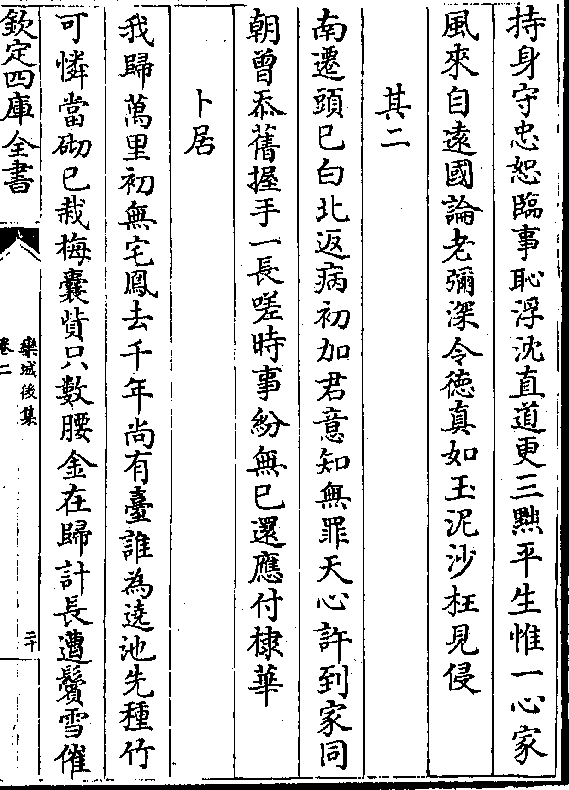 持身守忠恕臨事恥浮沈直道更三黜平生惟一心家
風來自遠國論老彌深令徳真如玉泥沙枉見侵
其二
南遷頭已白北返病初加君意知無罪天心許到家同
朝曾忝舊握手一長嗟時事紛無已還應付棣華
卜居
我歸萬里初無宅鳳去千年尚有臺誰為遶池先種竹
可憐當砌已栽梅囊貲只數腰金在歸計長遭鬢雪催
欽定四庫全書
欒城後集
卷二
二十